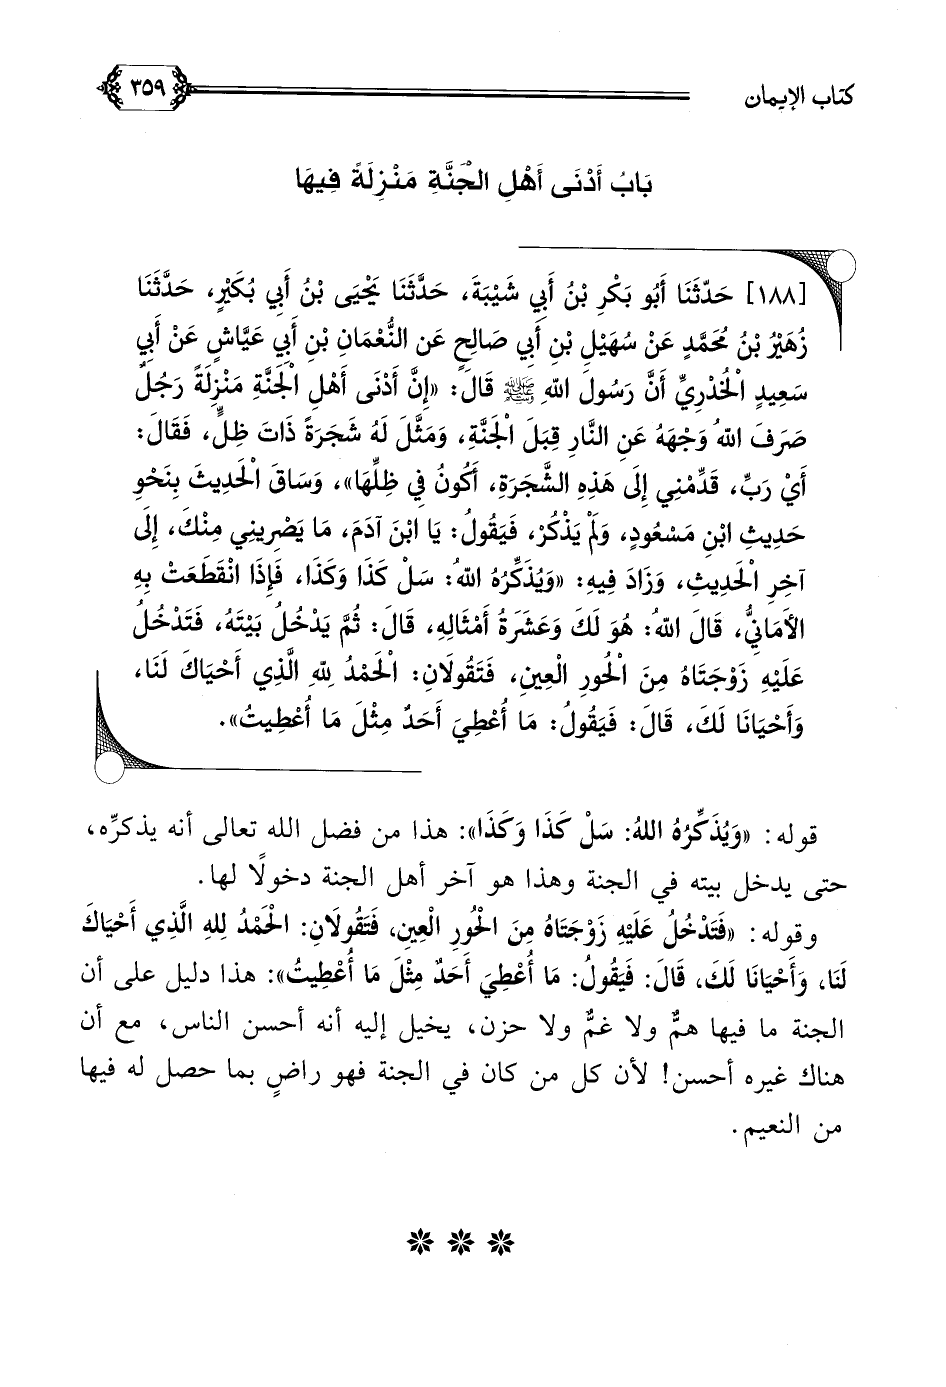 كتاب الإيمان
٣٥٩
بَابُ أَدْنَى أَهْلِ الْجَنَّةِ مَنْزِلَةً فِيهَا
[١٨٨] حَدَّثَنَا أَبُو بَكْرِ بْنُ أَبِي شَيْبَةَ، حَدَّثَنَا يَحْيَى بْنُ أَبِي بُكَيْرٍ، حَدَّثَنَا
زُهَيْرُ بْنُ مُحَمَّدٍ عَنْ سُهَيْلِ بْنِ أَبِي صَالِحٍ عَنِ النُّعْمَانِ بْنِ أَبِي عَيَّاشٍ عَنْ أَبِي
سَعِيدٍ الْخُدْرِيِّ أَنَّ رَسُولَ اللهِ ﷺ قَالَ: «إِنَّ أَدْنَى أَهْلِ الْجَنَّةِ مَنْزِلَةً رَجُلٌ
صَرَفَ اللهُ وَجْهَهُ عَنِ النَّارِ قِبَلَ الْجَنَّةِ، وَمَثَّلَ لَهُ شَجَرَةً ذَاتَ ظِلٍّ، فَقَالَ:
أَيْ رَبِّ، قَدِّمْنِي إِلَى هَذِهِ الشَّجَرَةِ، أَكُونُ فِي ظِلِّهَا»، وَسَاقَ الْحَدِيثَ بِنَحْوِ
حَدِيثِ ابْنِ مَسْعُودٍ، وَلَمْ يَذْكُرْ، فَيَقُولُ: يَا ابْنَ آدَمَ، مَا يَصْرِينِي مِنْكَ، إِلَى
آخِرِ الْحَدِيثِ، وَزَادَ فِيهِ: «وَيُذَكِّرُهُ اللهُ: سَلْ كَذَا وَكَذَا، فَإِذَا انْقَطَعَتْ بِهِ
الأَمَانِيُّ، قَالَ اللهُ: هُوَ لَكَ وَعَشَرَةُ أَمْثَالِهِ، قَالَ: ثُمَّ يَدْخُلُ بَيْتَهُ، فَتَدْخُلُ
عَلَيْهِ زَوْجَتَاهُ مِنَ الْحُورِ الْعِينِ، فَتَقُولَانِ: الْحَمْدُ لِلهِ الَّذِي أَحْيَاكَ لَنَا،
وَأَحْيَانَا لَكَ، قَالَ: فَيَقُولُ: مَا أُعْطِيَ أَحَدٌ مِثْلَ مَا أُعْطِيتُ».
قوله: «وَيُذَكِّرُهُ اللهُ: سَلْ كَذَا وَكَذَا»: هذا من فضل الله تعالى أنه يذكرِّه،
حتى يدخل بيته في الجنة وهذا هو آخر أهل الجنة دخولًا لها.
وقوله: «فَتَدْخُلُ عَلَيْهِ زَوْجَتَاهُ مِنَ الْحُورِ الْعِينِ، فَتَقُولَانِ: الْحَمْدُ لِلهِ الَّذِي أَحْيَاكَ
لَنَا، وَأَحْيَانَا لَكَ، قَالَ: فَيَقُولُ: مَا أُعْطِيَ أَحَدٌ مِثْلَ مَا أُعْطِيتُ»: هذا دليل على أن
الجنة ما فيها همٌّ ولا غمٌّ ولا حزن، يخيل إليه أنه أحسن الناس، مع أن
هناك غيره أحسن! لأن كل من كان في الجنة فهو راضٍ بما حصل له فيها
من النعيم.